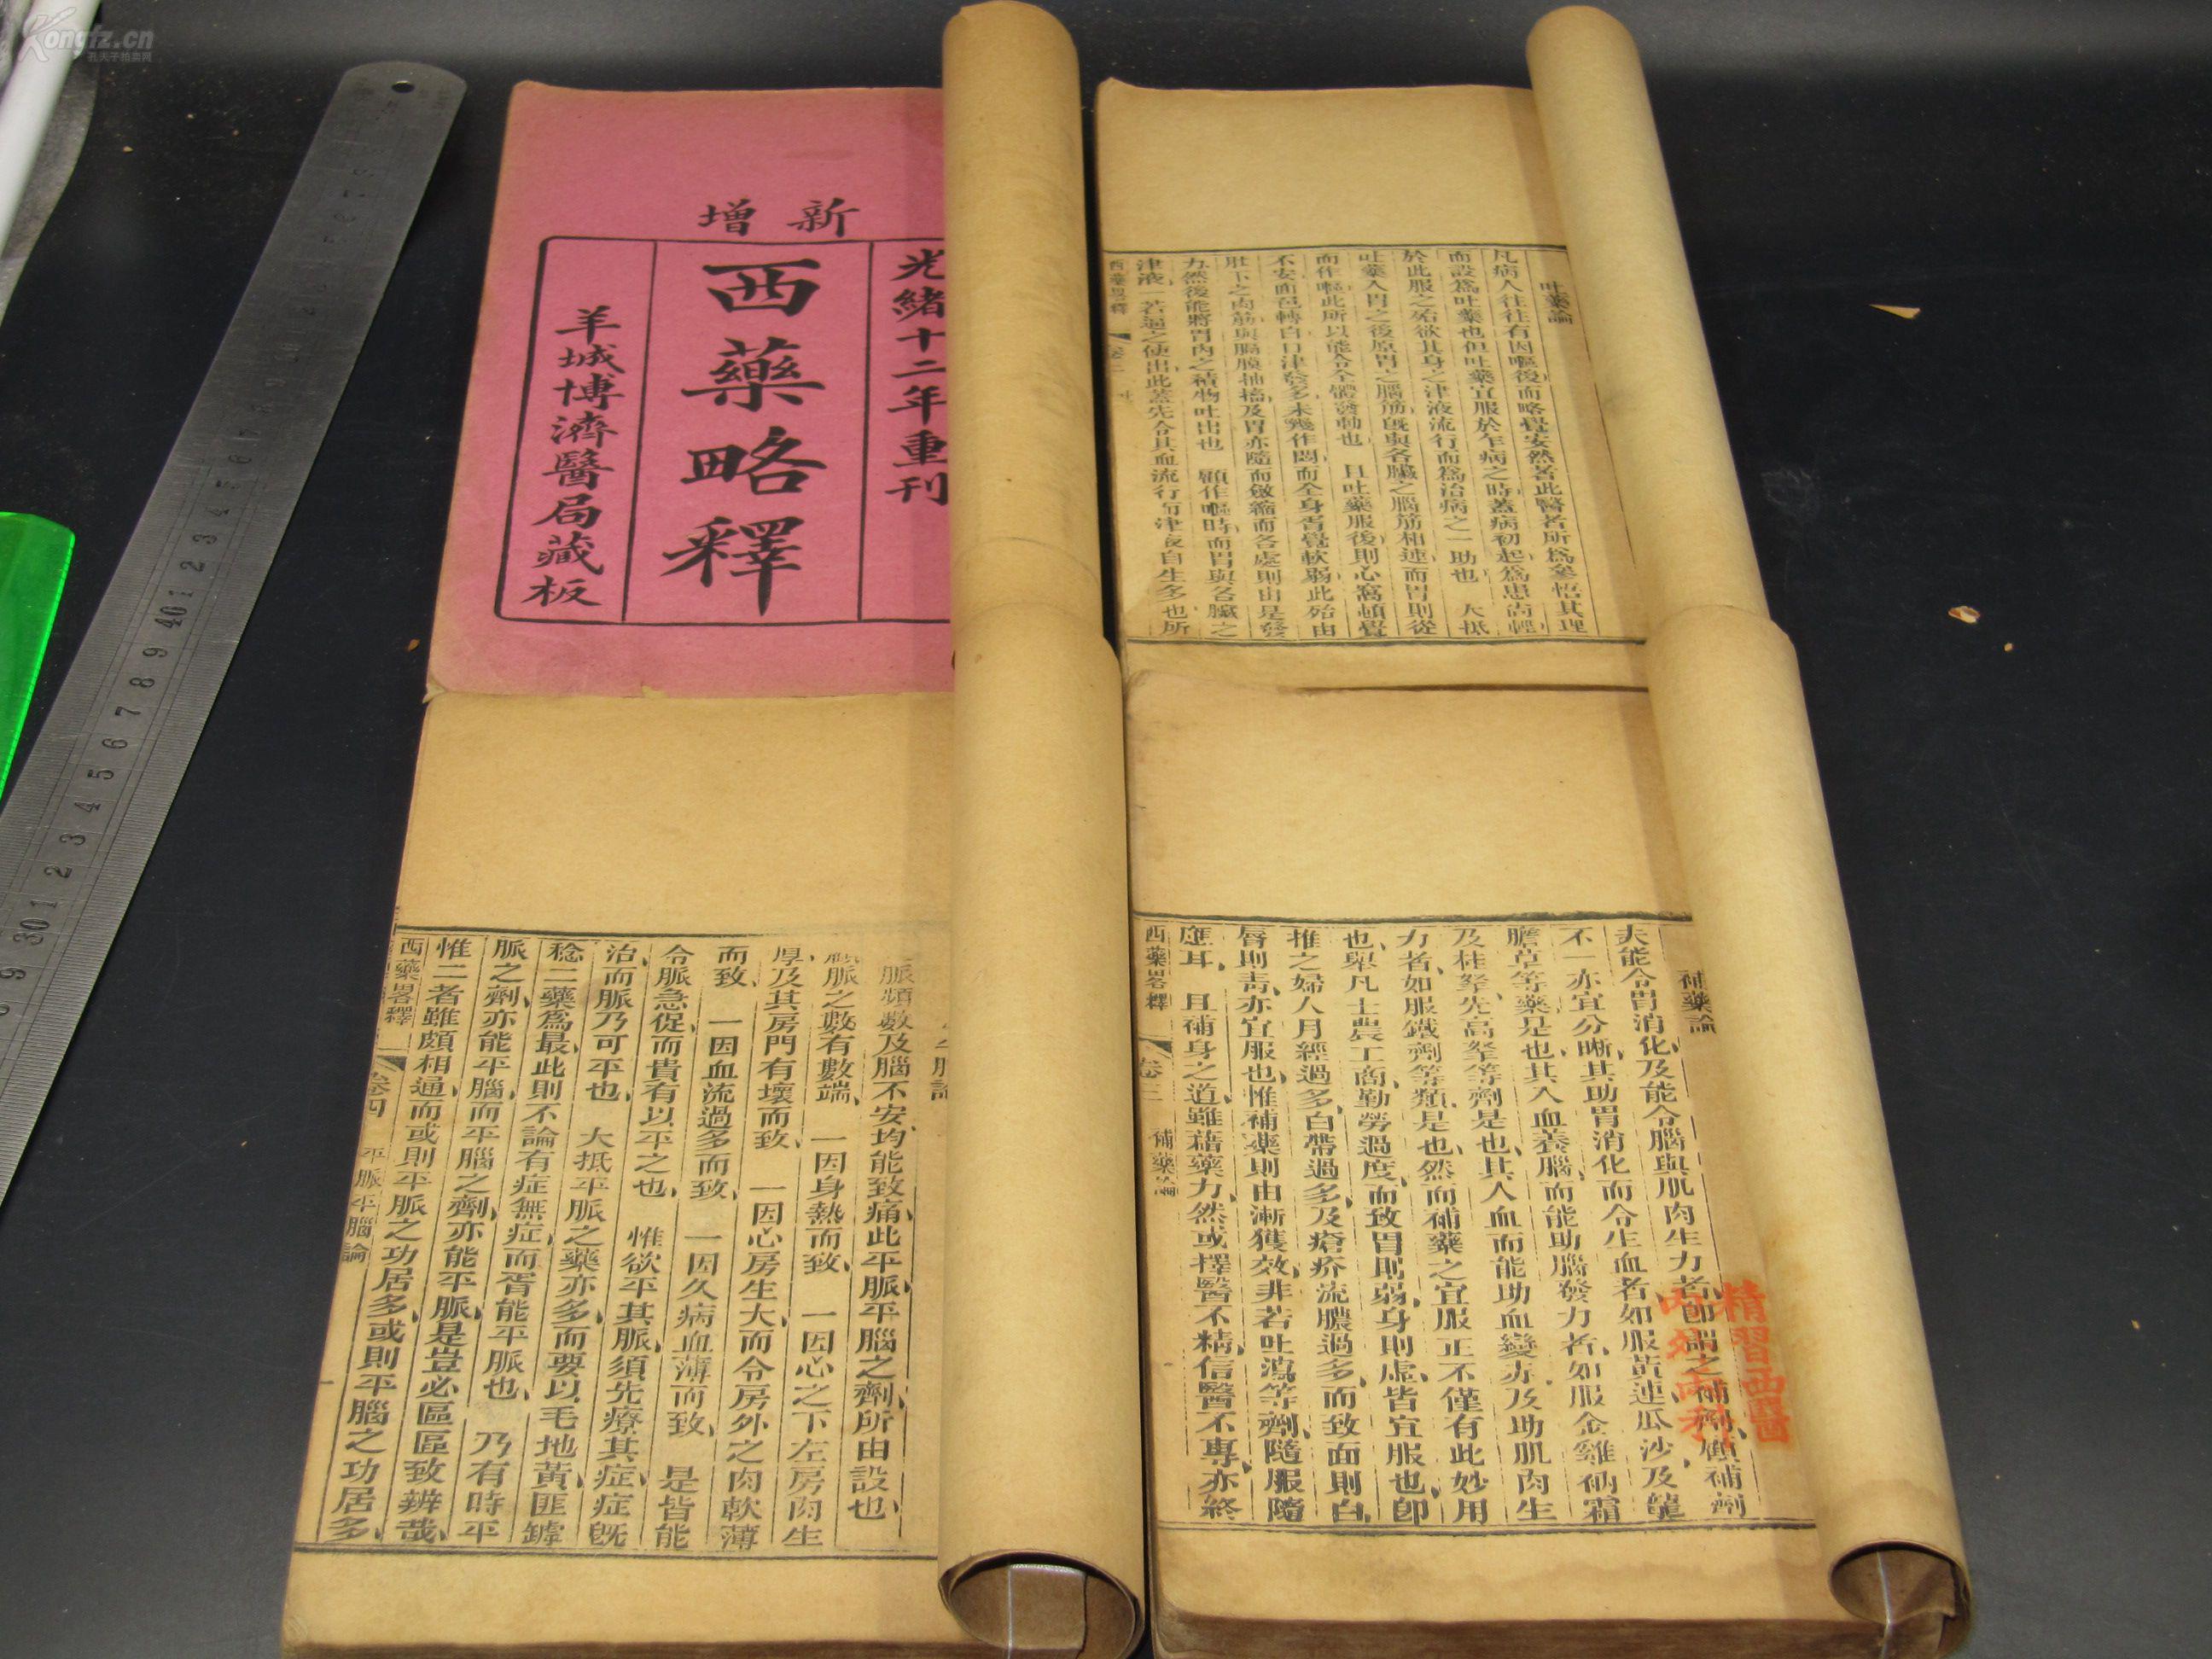 Kongfz.cn
孔夫子拍卖网
新增
光緒十二年重刊
西藥略釋
羊城博濟醫局藏板
吐藥論
凡病人往往有因嘔後而略覺安然者此醫者所爲參悟其理
而設爲吐藥也但吐藥宜服於乍病之時蓋病初起爲患尚輕
於此服之殆欲其身之津液流行而爲治病之一助也 大抵
吐藥入胃之後原胃之腦筋既與各臟之腦筋相連而胃則從
而作嘔此所以能令全體發動也 且吐藥服後則心窩頓覺
不安面色轉白口津發多未幾作悶而全身胥覺軟弱此殆由
肚下之肉筋與腸膜抽搐及胃亦隨而斂縮而各處則由是發
力然後能將胃內之積物吐出也 顧作嘔時而胃與各臟之
津液 若逼之使出此蓋先令其血流行而津液自生多也所
西藥畧釋 卷二
平脈論
脈頻數及腦不安均能致痛此平脈平腦之劑所由設也
顧脈之數有數端 一因身熱而致 一因心之下左房肉生
厚及其房門有壞而致 一因心房生大而令房外之肉軟薄
而致 一因血流過多而致 一因久病血薄而致 是皆能
令脈急促而貴有以平之也 惟欲平其脈須先療其症症既
治而脈乃可平也 大抵平脈之藥亦多而要以毛地黃匪鎼
稔二藥爲最此則不論有症無症而胥能平脈也 乃有時平
脈之劑亦能平腦而平腦之劑亦能平脈是豈必區區致辨哉
惟二者雖頗相通而或則平脈之功居多或則平腦之功居多
西藥畧釋 卷四 平脈平腦論
補藥論
夫能令胃消化及能令腦與肌肉生力者卽謂之補劑顧補劑
不一亦宜分晰其助胃消化而令生血者如服黃連瓜沙及龍
膽草等藥是也其入血養腦而能助腦發力者如服金雞納霜
及桂栛先高栛等劑是也其入血而能助血變赤及助肌肉生
力者如服鐵劑等類是也然而補藥之宜服正不僅有此妙用
也舉凡士農工商勤勞過度而致胃則弱身則虛皆宜服也卽
推之婦人月經過多白帶過多及瘡疥流膿過多而致面則白
唇則青亦宜服也惟補藥則由漸獲效非若吐瀉等劑隨服隨
應耳 且補身之道雖藉藥力然或擇醫不精信醫不專亦終
西藥畧釋 卷三 補藥論
精習西醫
內外兩科